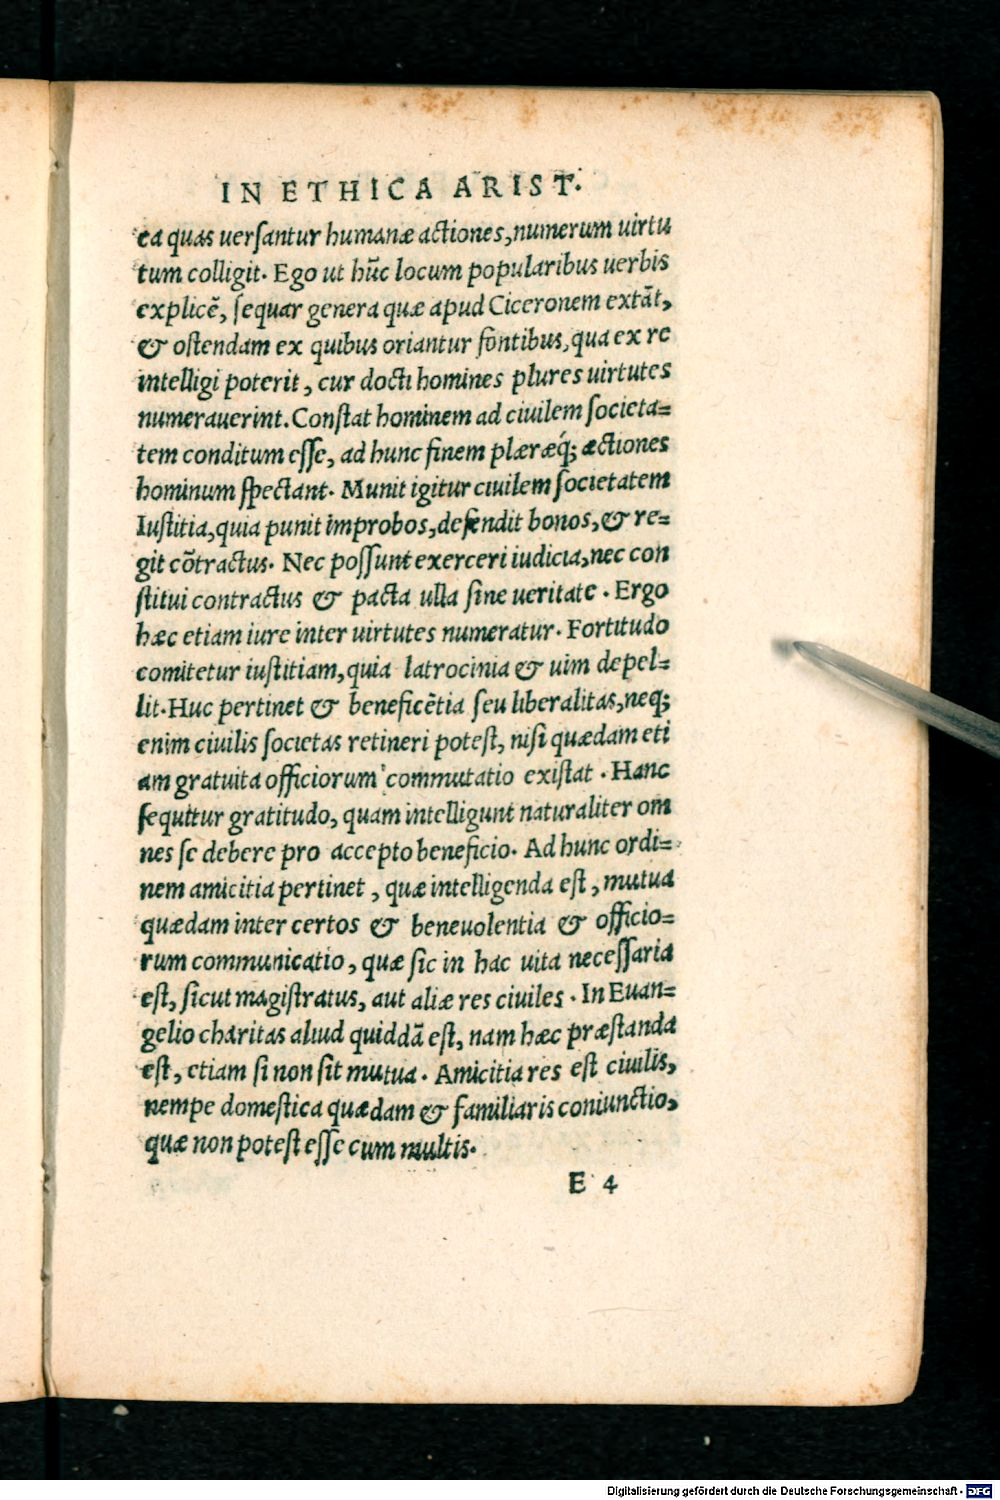 IN ETHICA ARIST.
ea quas uersantur humanæ actiones, numerum uirtu
tum colligit. Ego ut hũc locum popularibus uerbis
explicẽ, sequar genera quæ apud Ciceronem extãt,
& ostendam ex quibus oriantur fontibus, qua ex re
intelligi poterit, cur docti homines plures uirtutes
numerauerint. Constat hominem ad ciuilem societa=
tem conditum esse, ad hunc finem plæræq́; actiones
hominum spectant. Munit igitur ciuilem societatem
Iustitia, quia punit improbos, defendit bonos, & re=
git cõtractus. Nec possunt exerceri iudicia, nec con
stitui contractus & pacta ulla sine ueritate. Ergo
hæc etiam iure inter uirtutes numeratur. Fortitudo
comitetur iustitiam, quia latrocinia & uim depel=
lit. Huc pertinet & beneficẽtia seu liberalitas, neq;
enim ciuilis societas retineri potest, nisi quædam eti
am gratuita officiorum commutatio existat. Hanc
sequitur gratitudo, quam intelligunt naturaliter om
nes se debere pro accepto beneficio. Ad hunc ordi=
nem amicitia pertinet, quæ intelligenda est, mutua
quædam inter certos & beneuolentia & officio=
rum communicatio, quæ sic in hac uita necessaria
est, sicut magistratus, aut aliæ res ciuiles. In Euan=
gelio charitas aliud quiddã est, nam hæc præstanda
est, etiam si non sit mutua. Amicitia res est ciuilis,
nempe domestica quædam & familiaris coniunctio,
quæ non potest esse cum multis.
E 4
Digitalisierung gefördert durch die Deutsche Forschungsgemeinschaft - DFG